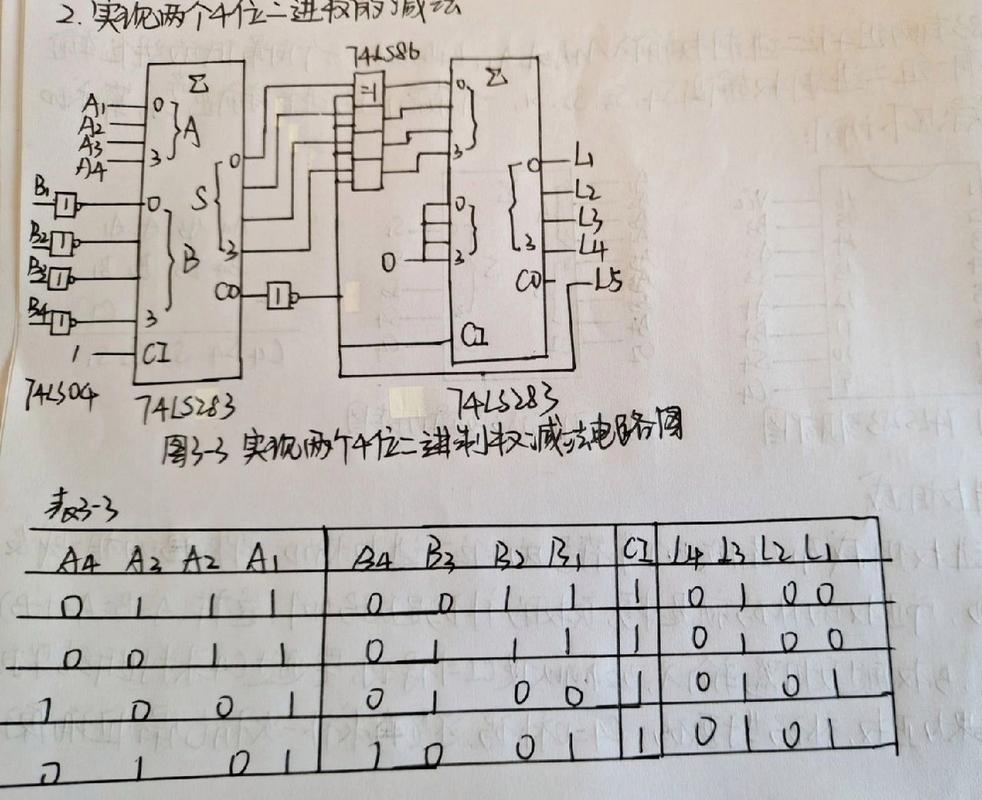 2. 实现两个4位二进制的减法
74LS86
Σ =1 Σ
A1 0 0
A2 A
A3 3 0 L1
A4 3 L2
B1 1 0 S 0 L3
B2 1 B 3 3 L4
B3 1 0 3 CO L5
B4 1 3 CO 1
1 CI CI
74LS04 74LS283 74LS283
图3-3 实现两个4位二进制数减法电路图
表3-3
A4 A3 A2 A1 B4 B3 B2 B1 CI L4 L3 L2 L1
0 1 1 1 0 0 1 1 1 0 1 0 0
0 0 1 1 0 1 1 1 1 0 1 0 0
1 0 0 1 0 1 0 0 1 0 1 0 1
0 1 0 1 1 0 0 1 1 0 1 0 1